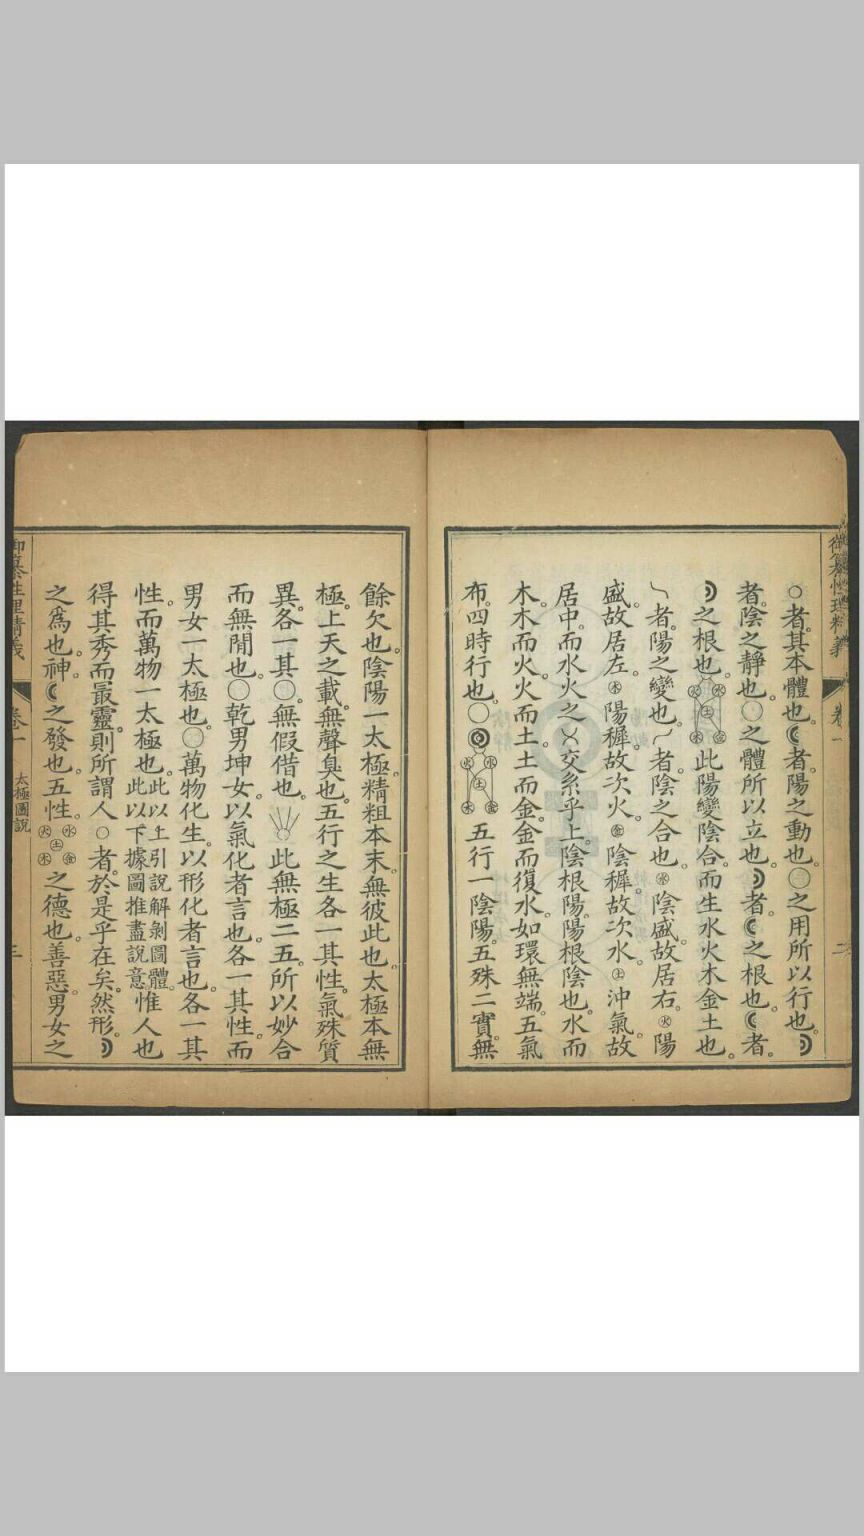 御纂性理精義
卷一
二
○者其本體也。☾者陽之動也。○之用所以行也。☽
者陰之靜也。○之體所以立也。☽者。☾之根也。☾者。
☽之根也。水火土木金此陽變陰合。而生水火木金土也。
㇏者。陽之變也。㇒者。陰之合也。㊌陰盛故居右。㊋陽
盛故居左。㊍陽穉故次火。㊎陰穉故次水。㊏沖氣故
居中。而水火之㐅交系乎上。陰根陽陽根陰也。水而
木。木而火。火而土。土而金。金而復水。如環無端。五氣
布。四時行也。○◎火水土木金五行一陰陽。五殊二實。無
餘欠也。陰陽一太極。精粗本末。無彼此也。太極本無
極。上天之載。無聲臭也。五行之生各一其性。氣殊質
異。各一其○。無假借也。此無極二五。所以妙合
而無閒也。○乾男坤女。以氣化者言也。各一其性。而
男女一太極也。○萬物化生。以形化者言也。各一其
性。而萬物一太極也。此以上引說解剝圖體。此以下據圖推盡說意惟人也
得其秀而最靈。則所謂人○者。於是乎在矣。然形。☽
之爲也。神。☾之發也。五性。水火土金木之德也。善惡。男女之
御纂性理精義
卷一
太極圖說
三